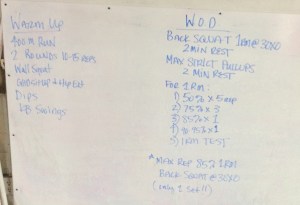 Warm Up
400m RUN
2 ROUNDS 10-15 reps
Wall Squat
Dips
KB Swings
W.O.D
BACK SQUAT 1RM @ 30X0
2 MIN REST
MAX STRICT PULLUPS
2 MIN REST
FOR 1RM:
1) 50% x 5 rep
2) 75% x 3
3) 85% x 1
4) 90-95% x 1
5) 1RM TEST
* MAX REP 85% 1RM
BACK SQUAT @ 30X0
(only 1 Set!!)